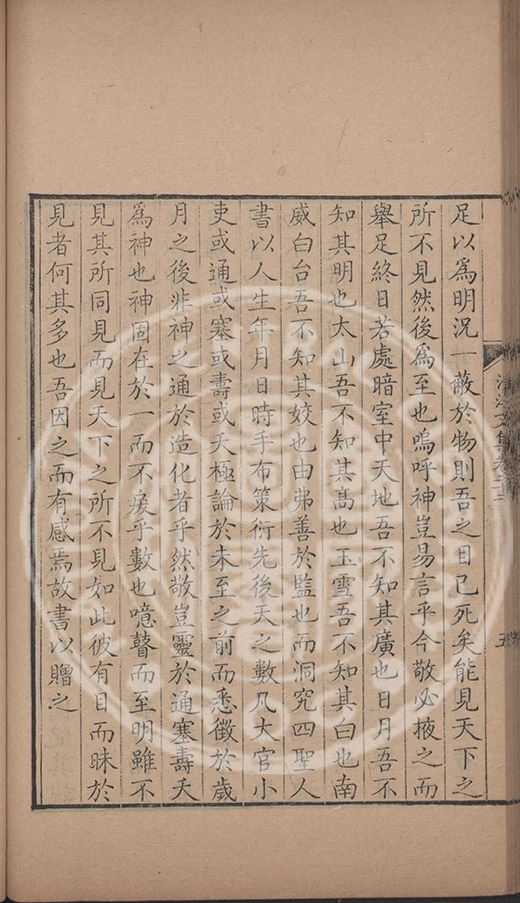 足以為明況一蔽於物則吾之目已死矣能見天下之
所不見然後為至也嗚呼神豈易言乎今敬必掖之而
舉足終日若處暗室中天地吾不知其廣也日月吾不
知其明也太山吾不知其髙也玉雪吾不知其白也南
威白台吾不知其姣也由弗善於監也而洞究四聖人
書以人生年月日時手布策衍先後天之數凡大官小
吏或通或塞或壽或夭極論於未至之前而悉徵於歲
月之後非神之通於造化者乎然敬豈靈於通塞壽夭
為神也神固在於一而不爰乎數也噫瞽而至明雖不
見其所同見而見天下之所不見如此彼有目而昧於
見者何其多也吾因之而有感焉故書以贈之
五